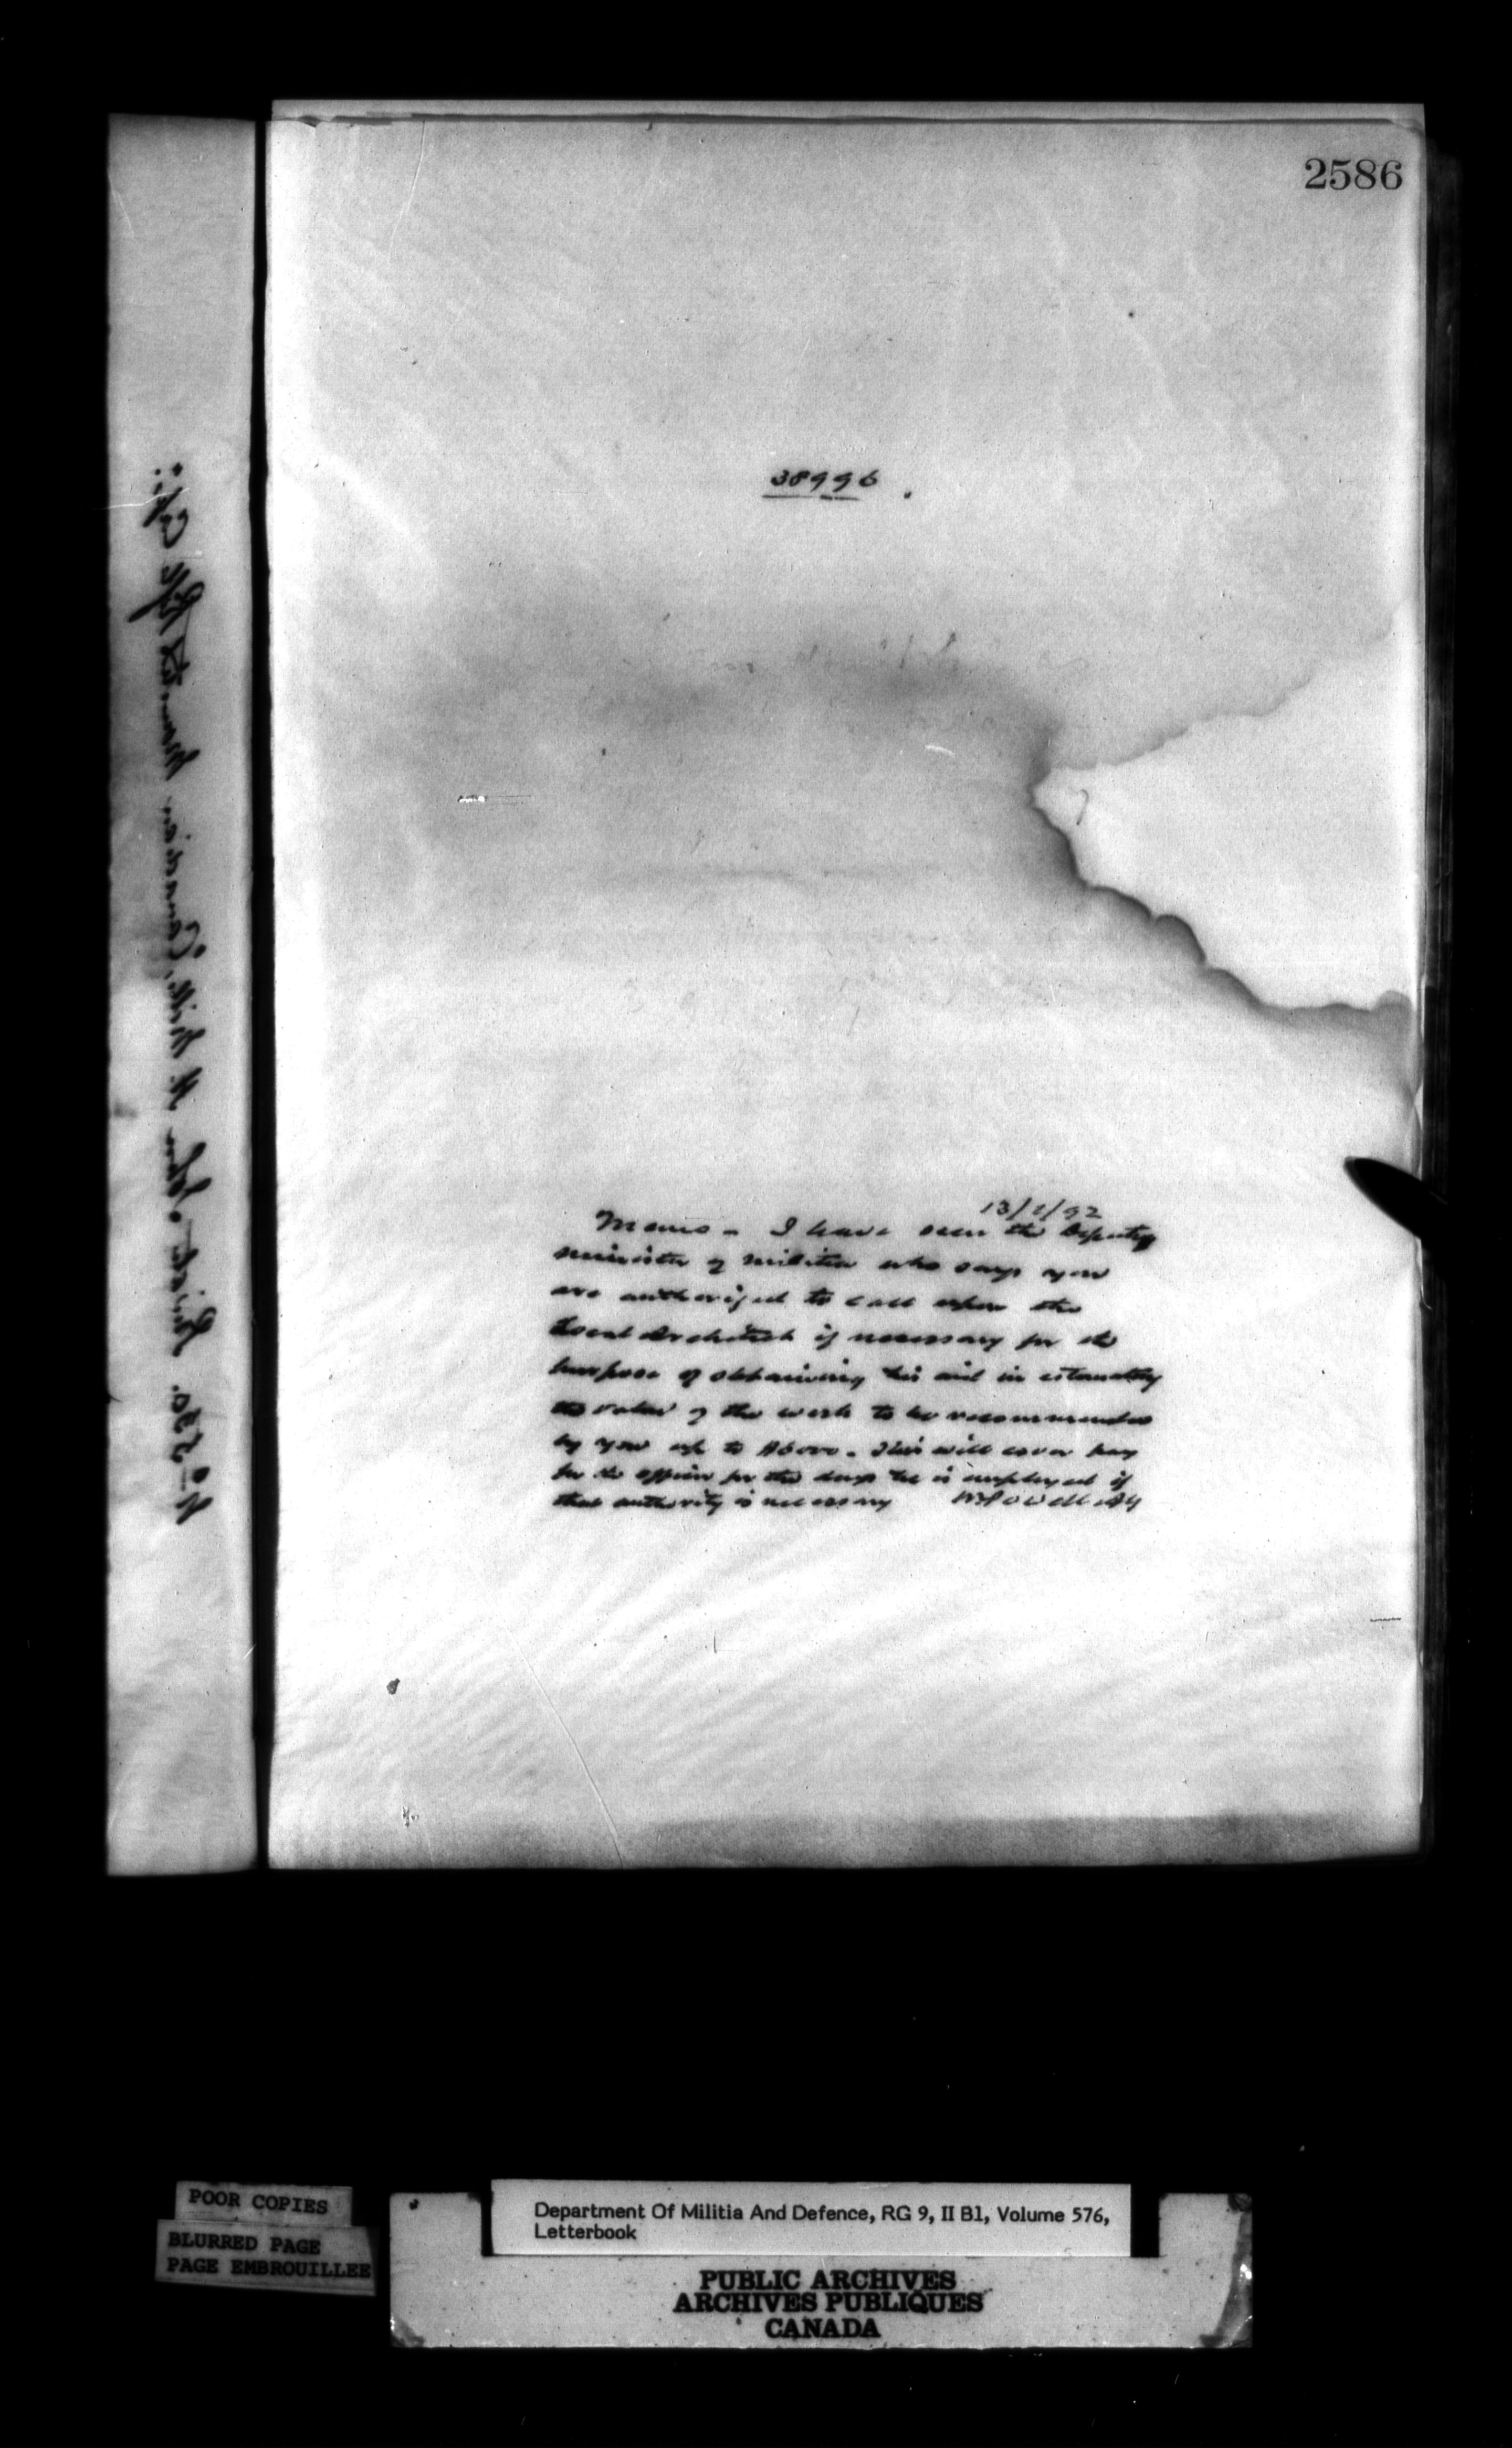 2586
38996
13/1/92
Memo - I have seen the Deputy
minister of militia who says you
are authorized to call upon the
Local Architect if necessary for the
purpose of obtaining his aid in estimating
the value of the work to be recommended
by you up to Above. This will cover pay
for the officer for the days he is employed if
that authority is necessary WPowell AG
No 550. Private John H. Canadian Mounted Rifle
POOR COPIES
BLURRED PAGE
PAGE EMBROUILLEE
Department Of Militia And Defence, RG 9, II B1, Volume 576,
Letterbook
PUBLIC ARCHIVES
ARCHIVES PUBLIQUES
CANADA